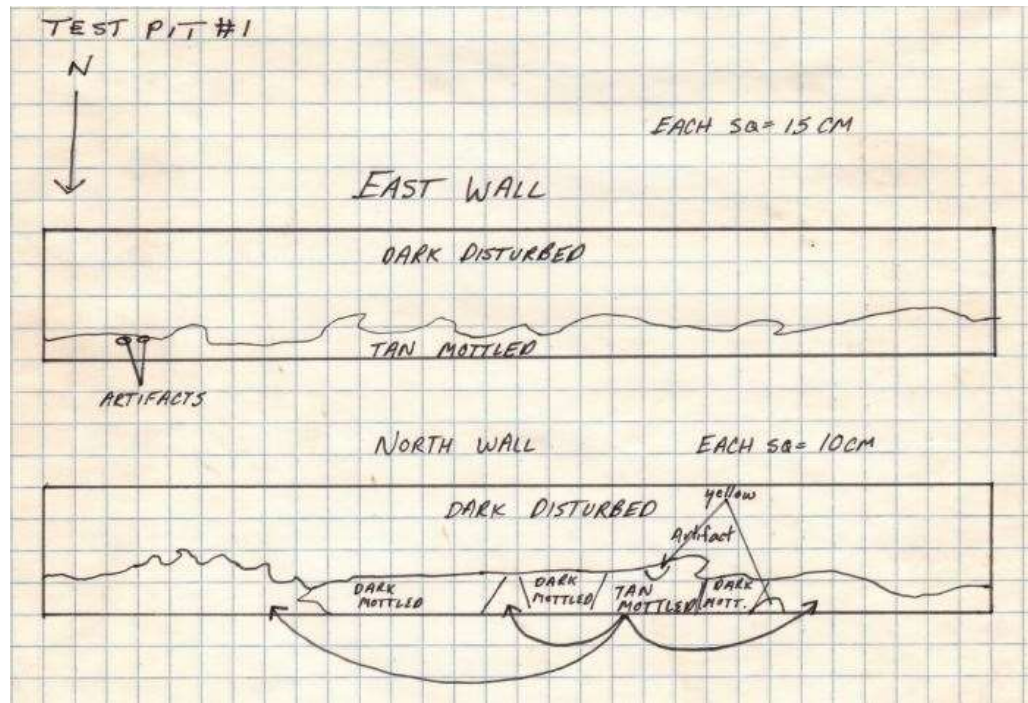 TEST PIT #1
N
EACH SQ = 15 CM
EAST WALL
DARK DISTURBED
TAN MOTTLED
ARTIFACTS
NORTH WALL
EACH SQ = 10CM
DARK DISTURBED
yellow
Artifact
DARK
MOTTLED
DARK
MOTTLED
TAN
MOTTLED
DARK
MOTT.